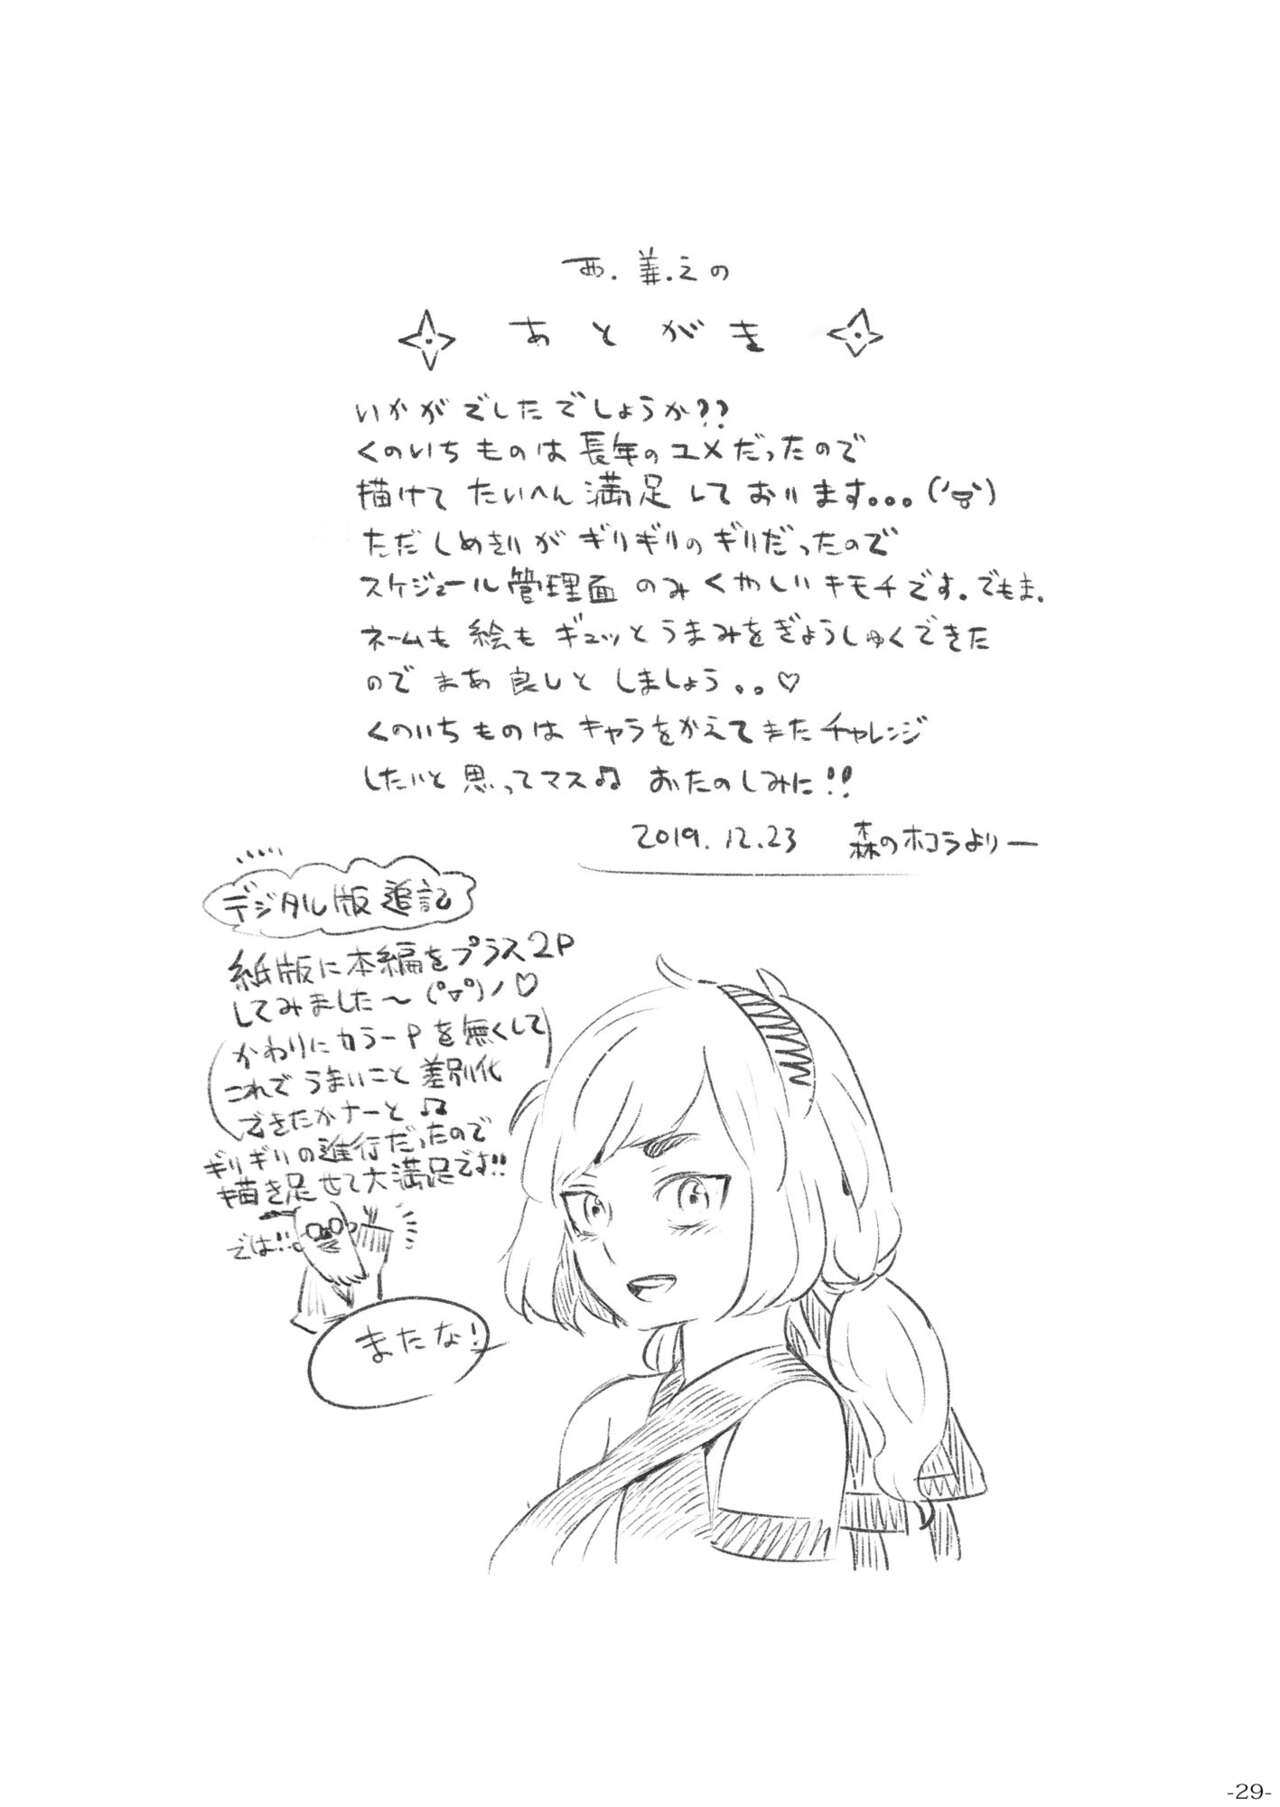 西.義.之の
あとがき
いかがでしたでしょうか??
くのいちものは長年のユメだったので
描けてたいへん満足しております。。。
ただしめきりがギリギリのギリだったので
スケジュール管理面のみくやしいキモチです。でもま、
ネームも絵もギュッとうまみをぎょうしゅくできた
のでまあ良しとしましょう。。♡
くのいちものはキャラをかえてまたチャレンジ
したいと思ってマス♫おたのしみに!!
2019.12.23 森のホコラよりー
デジタル版追記
紙版に本編をプラス2P
してみました〜(°▽°)ノ♡
かわりにカラーPを無くして
これでうまいこと差別化
できたかナーと♫
ギリギリの進行だったので
描き足せて大満足です!!
では!!
またな!
-29-